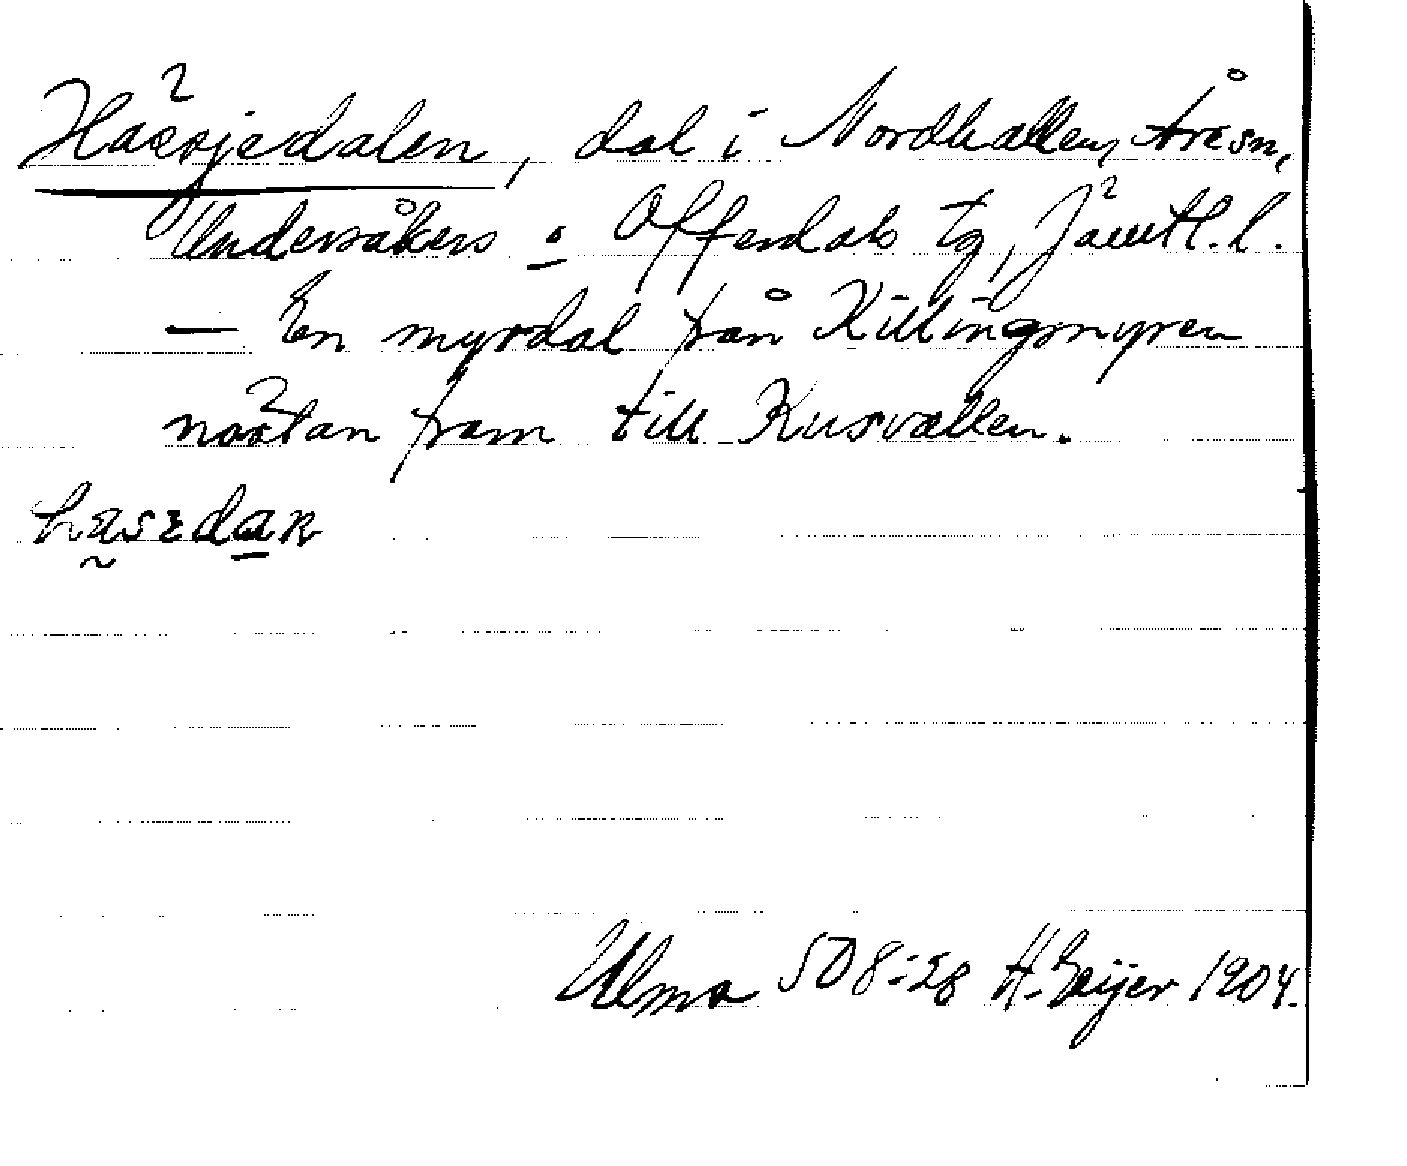 Hässjedalen, dal i Nordhallen, Åre sn,
Undersåkers o Offerdals tg, Jämtl. l.
— En myrdal från Killingmyren
nästan fram till Husvallen.
Ulma 508:28 H. Geijer 1904.